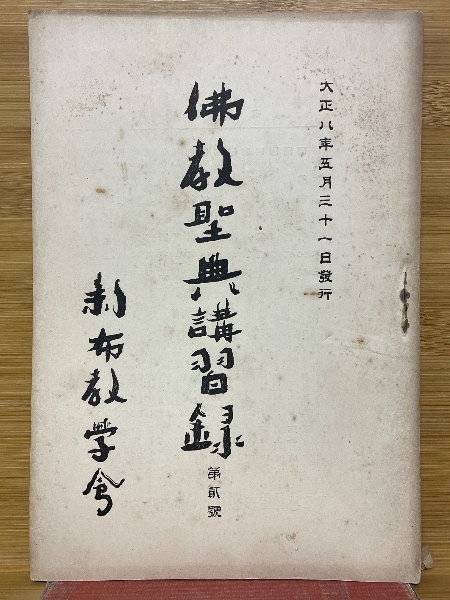 大正八年五月三十一日發行
佛教聖典講習録 第貳號
新布教学會